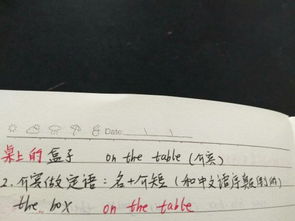 Date
桌上的盒子 on the table (介宾)
2. 介宾做定语：名+介短 (和中文语序颠倒的)
the box on the table